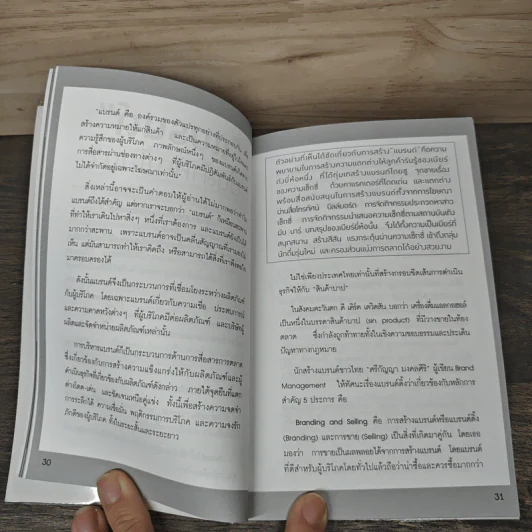 "แบรนด์ คือ องค์รวมของตัวแปรทุกอย่างที่ประกอบกัน
สร้างความหมายให้แก่สินค้า และเป็นความหมายที่อยู่ใน
ความรู้สึกของผู้บริโภค ภาพลักษณ์หนึ่งๆ ของแบรนด์เกิดจาก
การสื่อสารผ่านช่องทางต่างๆ ที่ผู้บริโภคมีปฏิสัมพันธ์กับแบรนด์
ไม่ได้จำกัดอยู่เฉพาะโฆษณาเท่านั้น"
สิ่งเหล่านี้อาจจะเป็นคำตอบให้ผู้อ่านได้ไม่มากพอว่าทำไม
แบรนด์ถึงได้สำคัญ แต่หากเราจะบอกว่า "แบรนด์ ก็เหมือนสะพาน
ที่ทำให้เราเดินไปหาสิ่งๆ หนึ่งที่เราต้องการ และแบรนด์ยังเป็นได้
มากกว่าสะพาน เพราะแบรนด์อาจเป็นคลื่นสัญญาณที่เรามองไม่
เห็น แต่มันสามารถทำให้เราคิดถึง หรือสามารถได้สิ่งที่เราคิดถึง
มาครอบครองได้
ดังนั้นแบรนด์จึงเป็นกระบวนการที่เชื่อมโยงระหว่างผลิตภัณฑ์
กับผู้บริโภค โดยเฉพาะแบรนด์เกี่ยวกับความเชื่อ ประสบการณ์
และความคาดหวังต่างๆ ที่ผู้บริโภคมีต่อผลิตภัณฑ์ และบริษัทผู้
ผลิตและจัดจำหน่ายผลิตภัณฑ์เหล่านั้น
การบริหารแบรนด์ก็เป็นกระบวนการด้านการสื่อสารการตลาด
ซึ่งเกี่ยวข้องกับการสร้างความแข็งแกร่งให้กับผลิตภัณฑ์และผู้
ดำเนินธุรกิจที่เกี่ยวข้องกับผลิตภัณฑ์ดังกล่าว ภายใต้จุดยืนที่แตก
ต่างโดด-เด่น และชัดเจนเหนือคู่แข่ง ทั้งนี้เพื่อสร้างความจดจำ
การระลึกได้ ความเชื่อมั่น พฤติกรรมการบริโภค และความจงรัก
ภักดีของผู้บริโภค ทั้งในระยะสั้นและระยะยาว
30
ตัวอย่างที่เห็นได้ชัดเกี่ยวกับการสร้าง "แบรนด์" คือความ
พยายามในการสร้างความแตกต่างให้ลูกค้ารับรู้ของเบียร์
ยี่ห้อหนึ่ง ที่ได้ทุ่มเทสร้างแบรนด์โดยชู จุดขายเรื่อง
ของความเซ็กซี่ ด้วยคาแรคเตอร์ที่โดดเด่น และแตกต่าง
พร้อมสื่อสนับสนุนในการสร้างแบรนด์ทั้งจากการโฆษณา
ผ่านสื่อโทรทัศน์ บิลล์บอร์ด การจัดกิจกรรมประกวดหาสาว
เซ็กซี่ การจัดกิจกรรมนำเสนอความเซ็กซี่ตามสถานบันเทิง
ผับ บาร์ บทสรุปของเบียร์ยี่ห้อนั้น จึงได้ทั้งความเป็นเบียร์ที่
สนุกสนาน สร้างสีสัน แรงกระตุ้นผ่านความเซ็กซี่ เข้าถึงกลุ่ม
นักดื่มรุ่นใหม่ และครองส่วนแบ่งการตลาดได้อย่างสวยงาม
ไม่ใช่เพียงประเทศไทยเท่านั้นที่สร้างกรอบขีดเส้นการดำเนิน
ธุรกิจให้กับ "สินค้าบาป"
ในสังคมตะวันตก ดี เคิร์ค เดวิดสัน บอกว่า เครื่องดื่มแอลกอฮอล์
เป็นหนึ่งในบรรดาสินค้าบาป (sin product) ที่มีวางขายในท้อง
ตลาด ซึ่งกำลังถูกท้าทายทั้งในเชิงความชอบธรรมและประเด็น
ปัญหาทางกฎหมาย
นักสร้างแบรนด์ชาวไทย "ศรีกัญญา มงคลศิริ" ผู้เขียน Brand
Management ให้ทัศนะเรื่องแบรนด์ดิ้งว่าเกี่ยวข้องกับหลักการ
สำคัญ 5 ประการ คือ
Branding and Selling คือ การสร้างแบรนด์หรือแบรนด์ดิ้ง
(Branding) และการขาย (Selling) เป็นสิ่งที่เกิดมาคู่กัน โดยเธอ
มองว่า การขายเป็นผลพลอยได้จากการสร้างแบรนด์ โดยแบรนด์
ที่ดีสำหรับผู้บริโภคโดยทั่วไปแล้วถือว่าน่าซื้อและควรซื้อมากกว่า
31